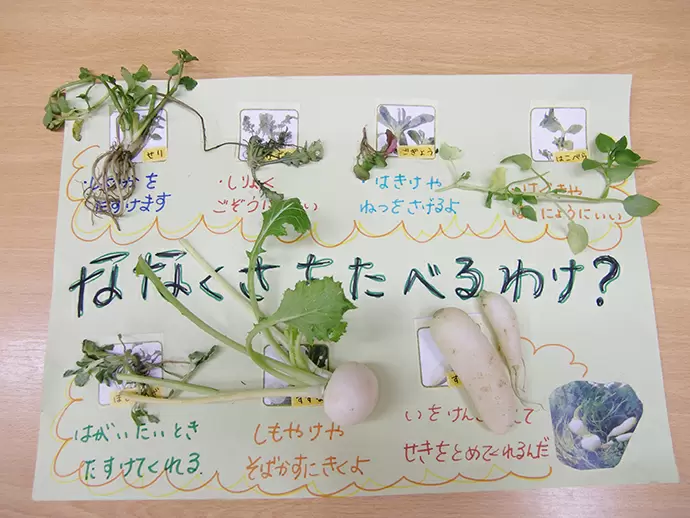 せり
ごぎょう
はこべら
たすけます
・しりょく
ごぞうにいい
・はきけや
ねつをさげるよ
にょうにいい
ななくさをたべるわけ?
はがいたいとき
たすけてくれる.
しもやけや
そばかすにきくよ
いをけん て
せきをとめてくれるんだ